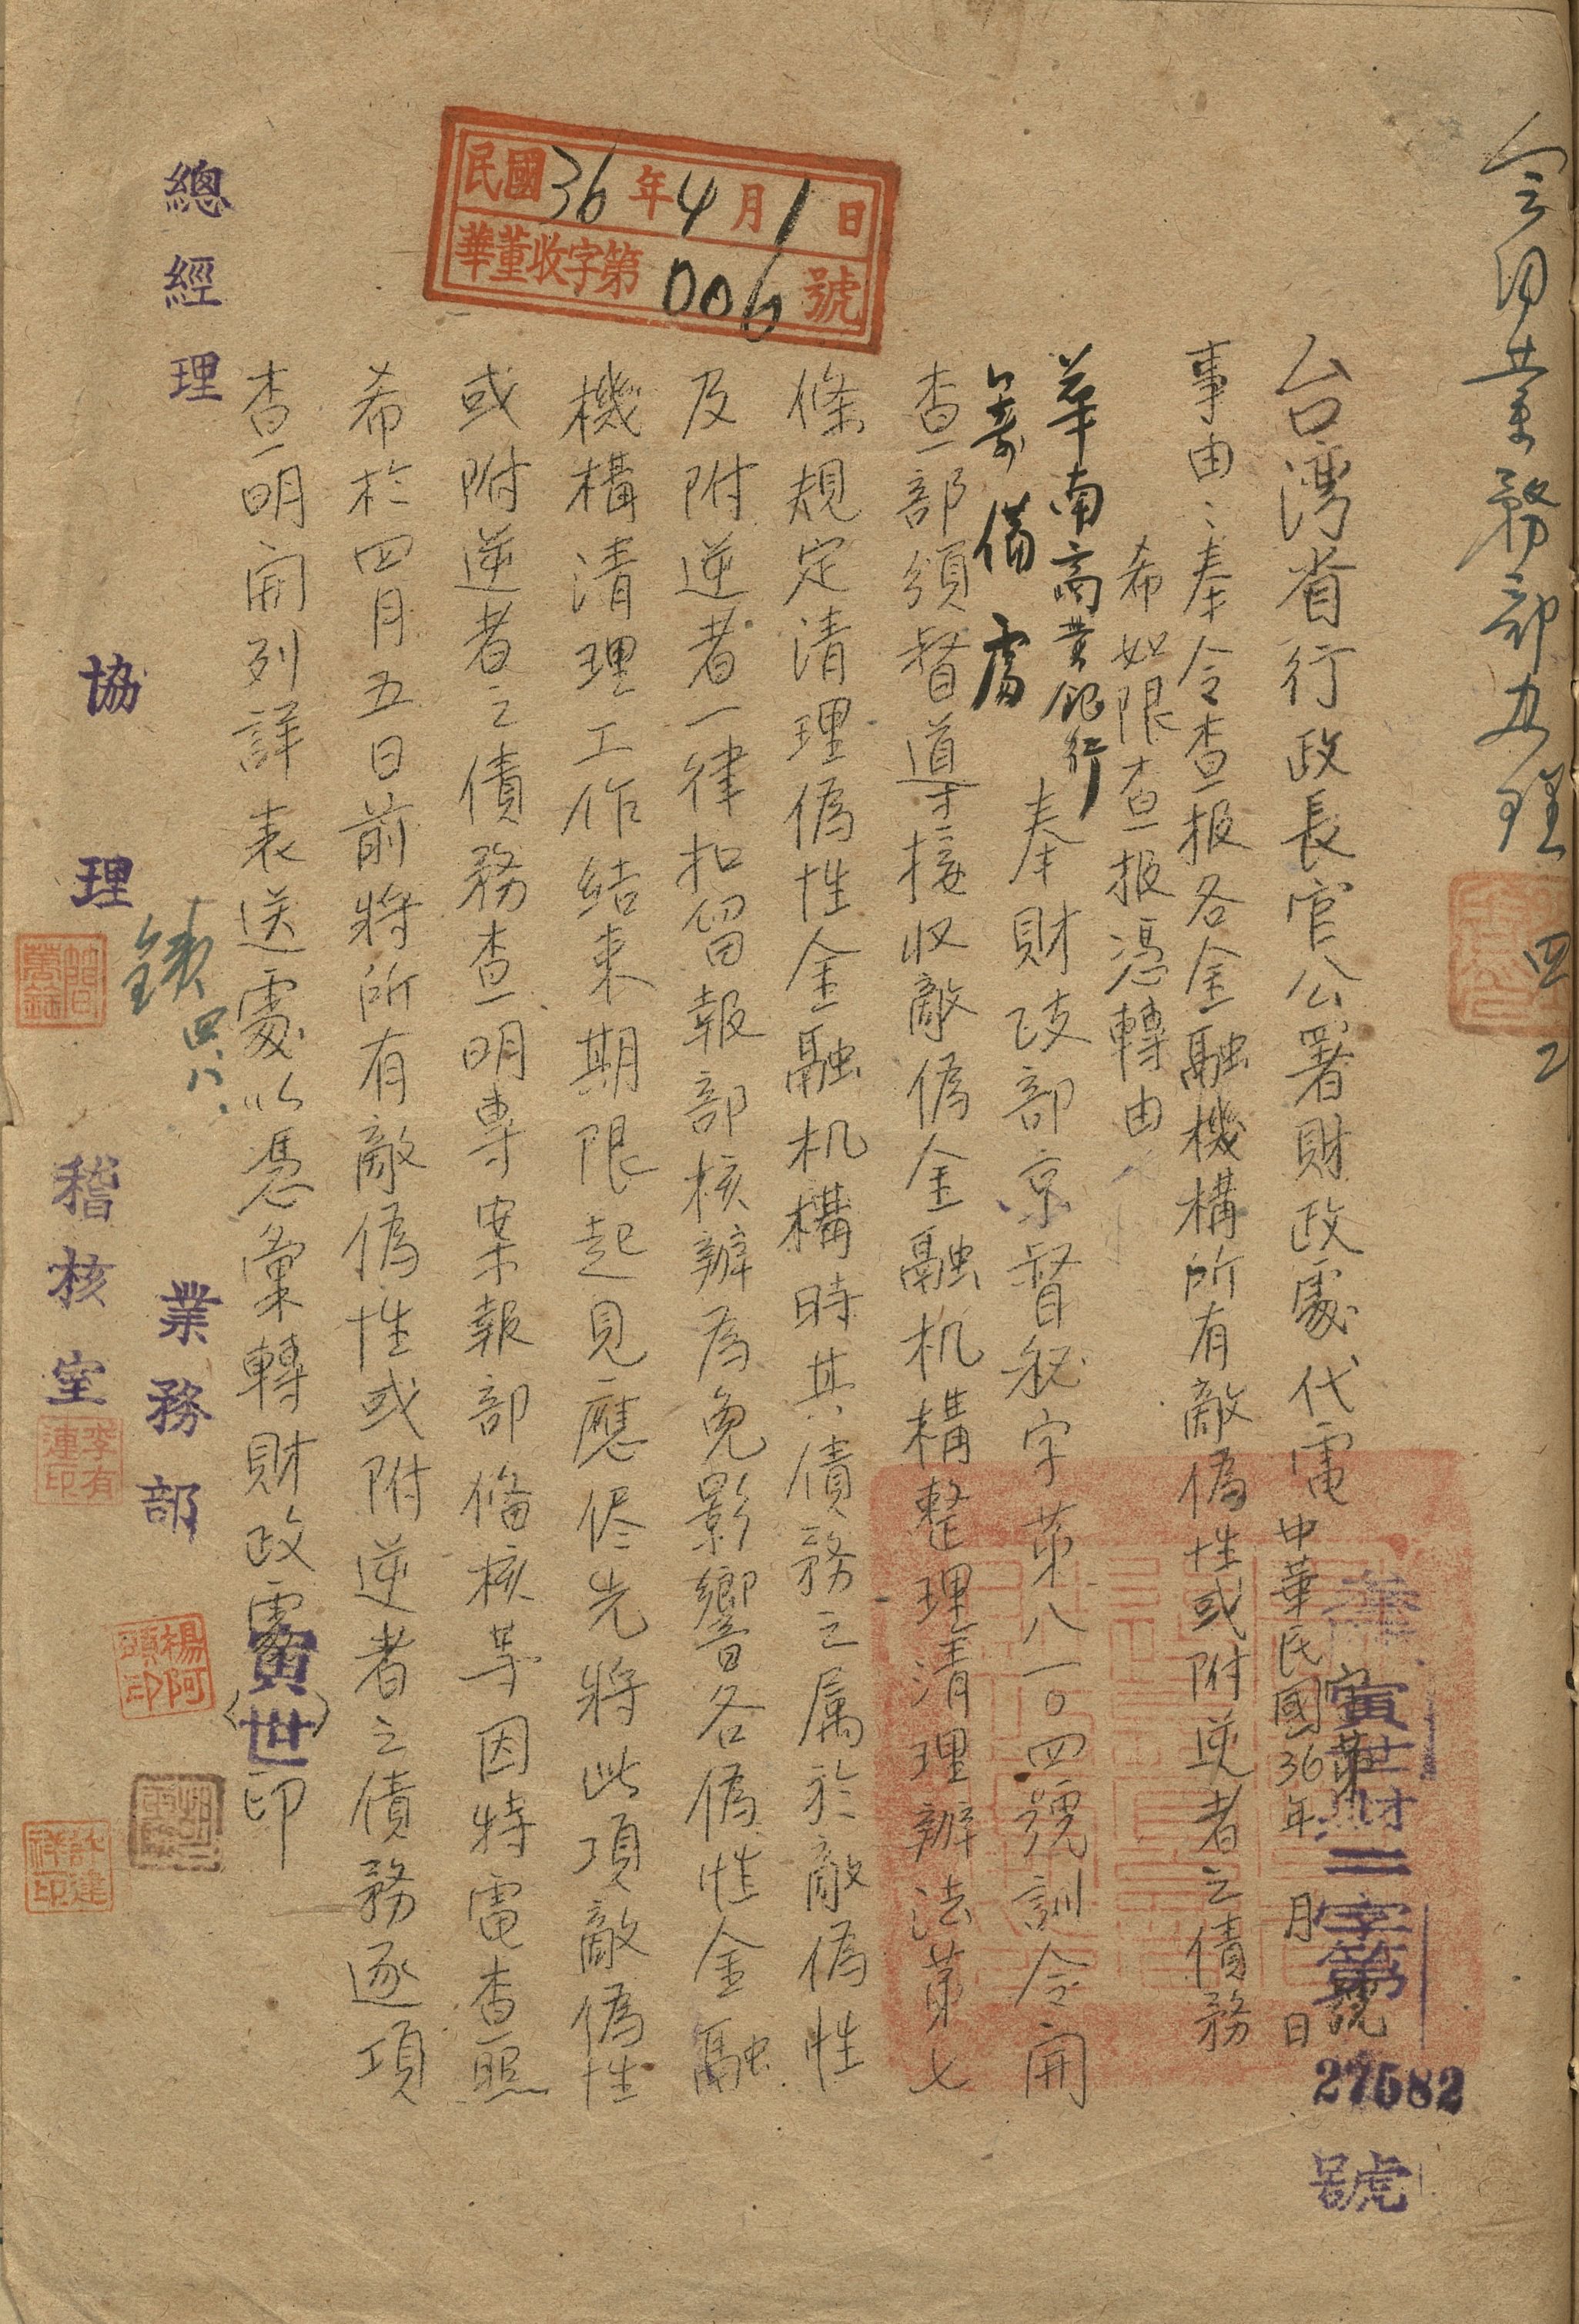 業務部办理 四 2
台湾省行政長官公署財政處代電 中華民國36年 月 日
寅世財二字第27582號
事由：奉令查报各金融機構所有敵偽性或附逆者之債務
希如限查报憑轉由
華南商業銀行
籌備處
奉財政部京督秘字第八一〇四號訓令開
查部頒督導接收敵偽金融机構整理清理辦法第七
條規定清理偽性金融机構時其債務之属於敵偽性
及附逆者一律扣留報部核辦為免影響各偽性金融
機構清理工作結束期限起見應侭先將此項敵偽性
或附逆者之債務查明專案報部俻核等因特電查照
希於四月五日前將所有敵偽性或附逆者之債務逐項
查明開列詳表送處以憑彙轉財政處（寅世）印
民國36年4月1日
華董收字第006號
總經理
協理
四八
業務部
稽核室
李有連印
楊阿頭印
許建祥印